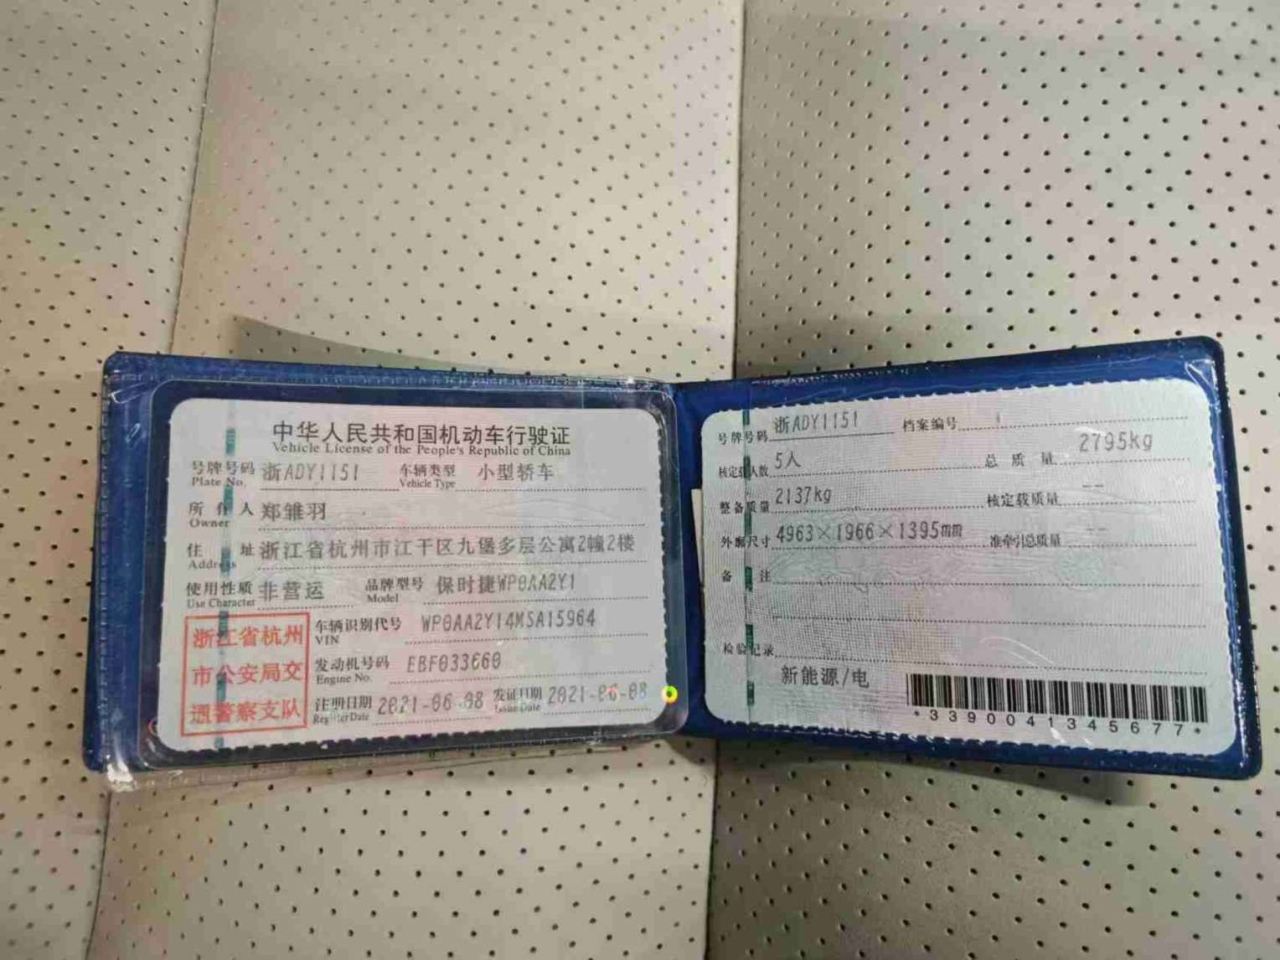 中华人民共和国机动车行驶证
Vehicle License of the People's Republic of China
号牌号码 浙ADY1151 车辆类型 小型轿车
Plate No. Vehicle Type
所有人 郑雏羽
Owner
住址 浙江省杭州市江干区九堡多层公寓2幢2楼
Address
使用性质 非营运 品牌型号 保时捷WP0AA2Y1
Use Character Model
浙江省杭州
市公安局交
通警察支队
车辆识别代号 WP0AA2Y14MSA15964
VIN
发动机号码 EBF033660
Engine No.
注册日期 2021-06-08 发证日期 2021-06-08
Register Date Issue Date
号牌号码 浙ADY1151 档案编号
核定载人数 5人 总质量 2795kg
整备质量 2137kg 核定载质量 --
外廓尺寸 4963×1966×1395mm 准牵引总质量 --
备注
检验记录
新能源/电
*3390041345677*